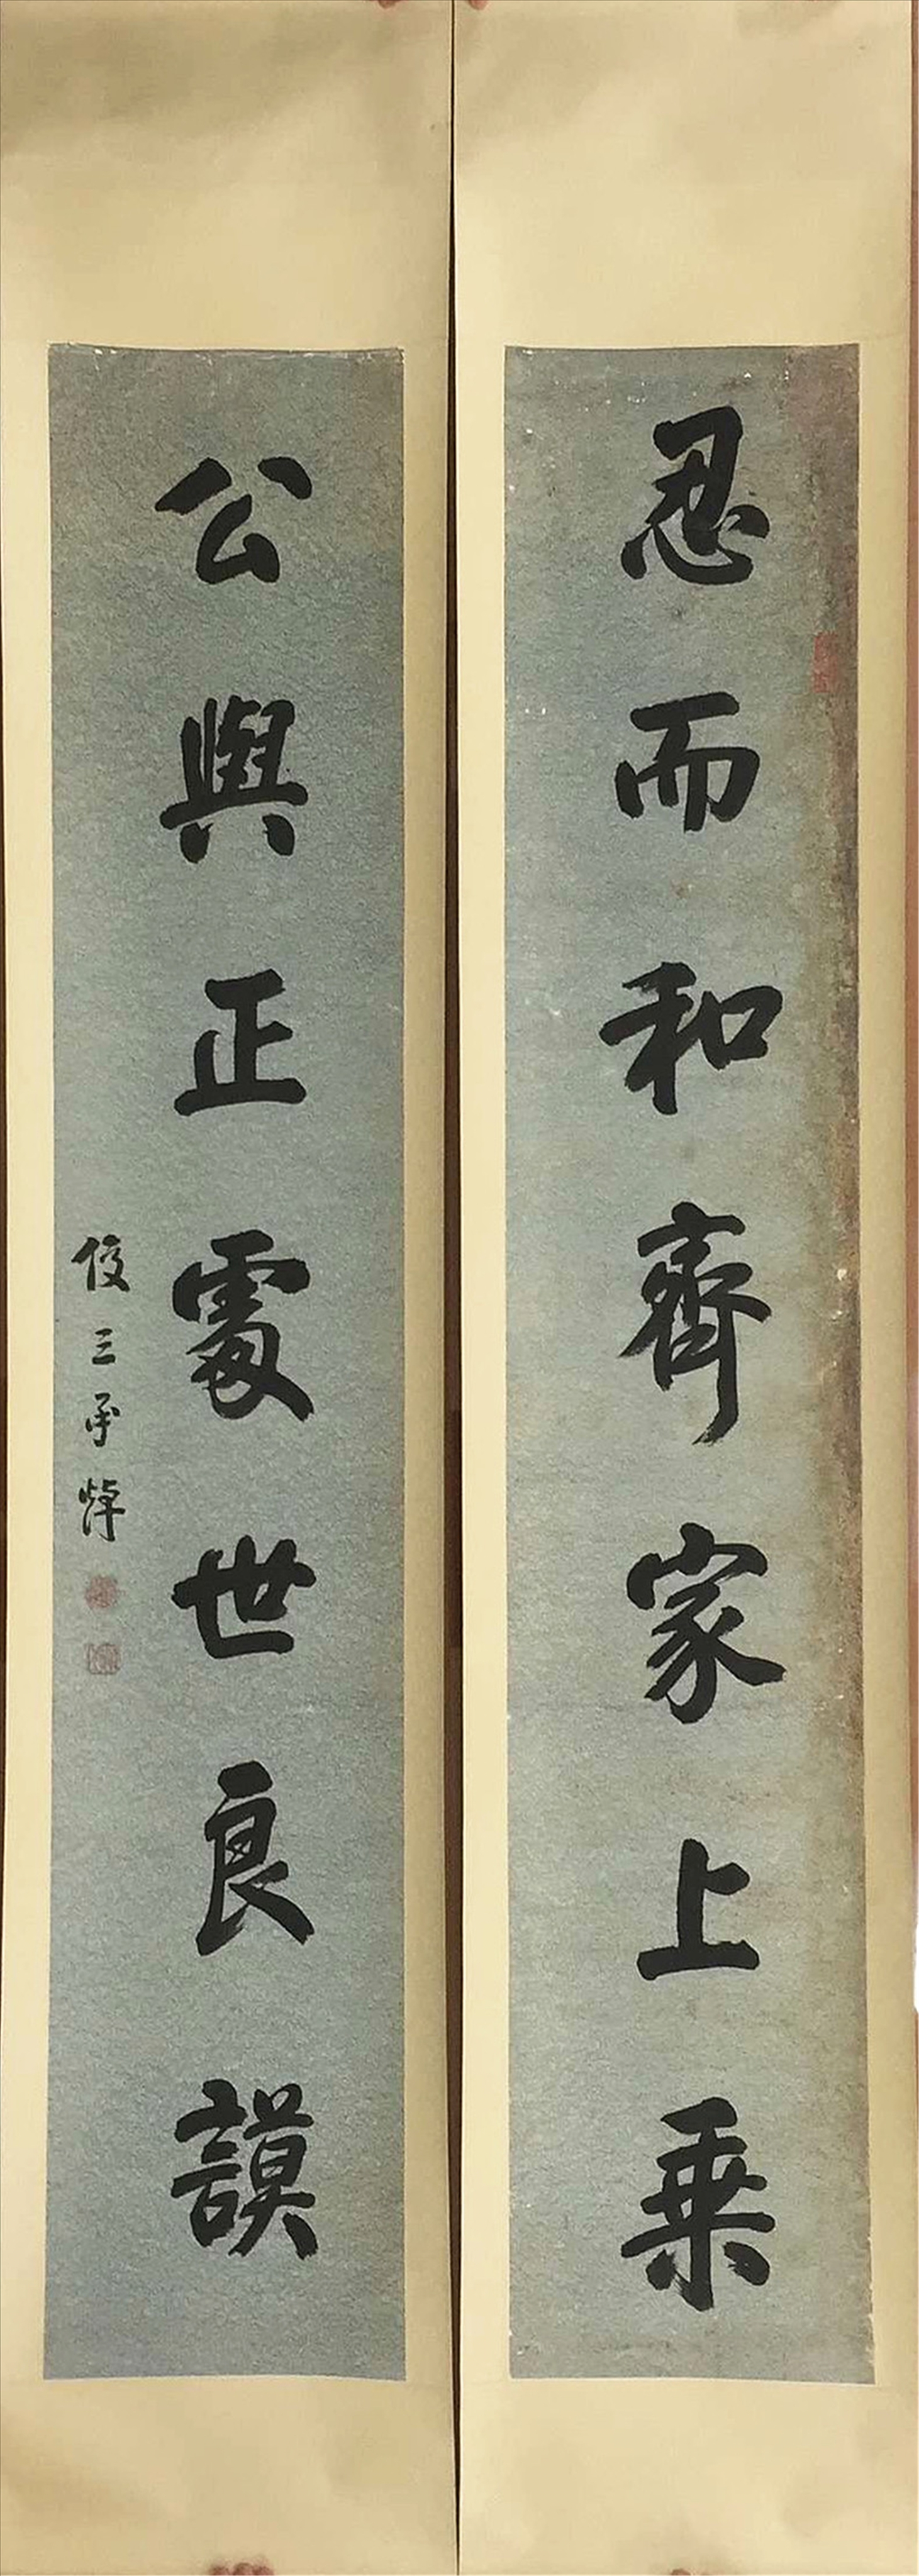 忍而和齊家上乘
公與正處世良謨
俊三承焯